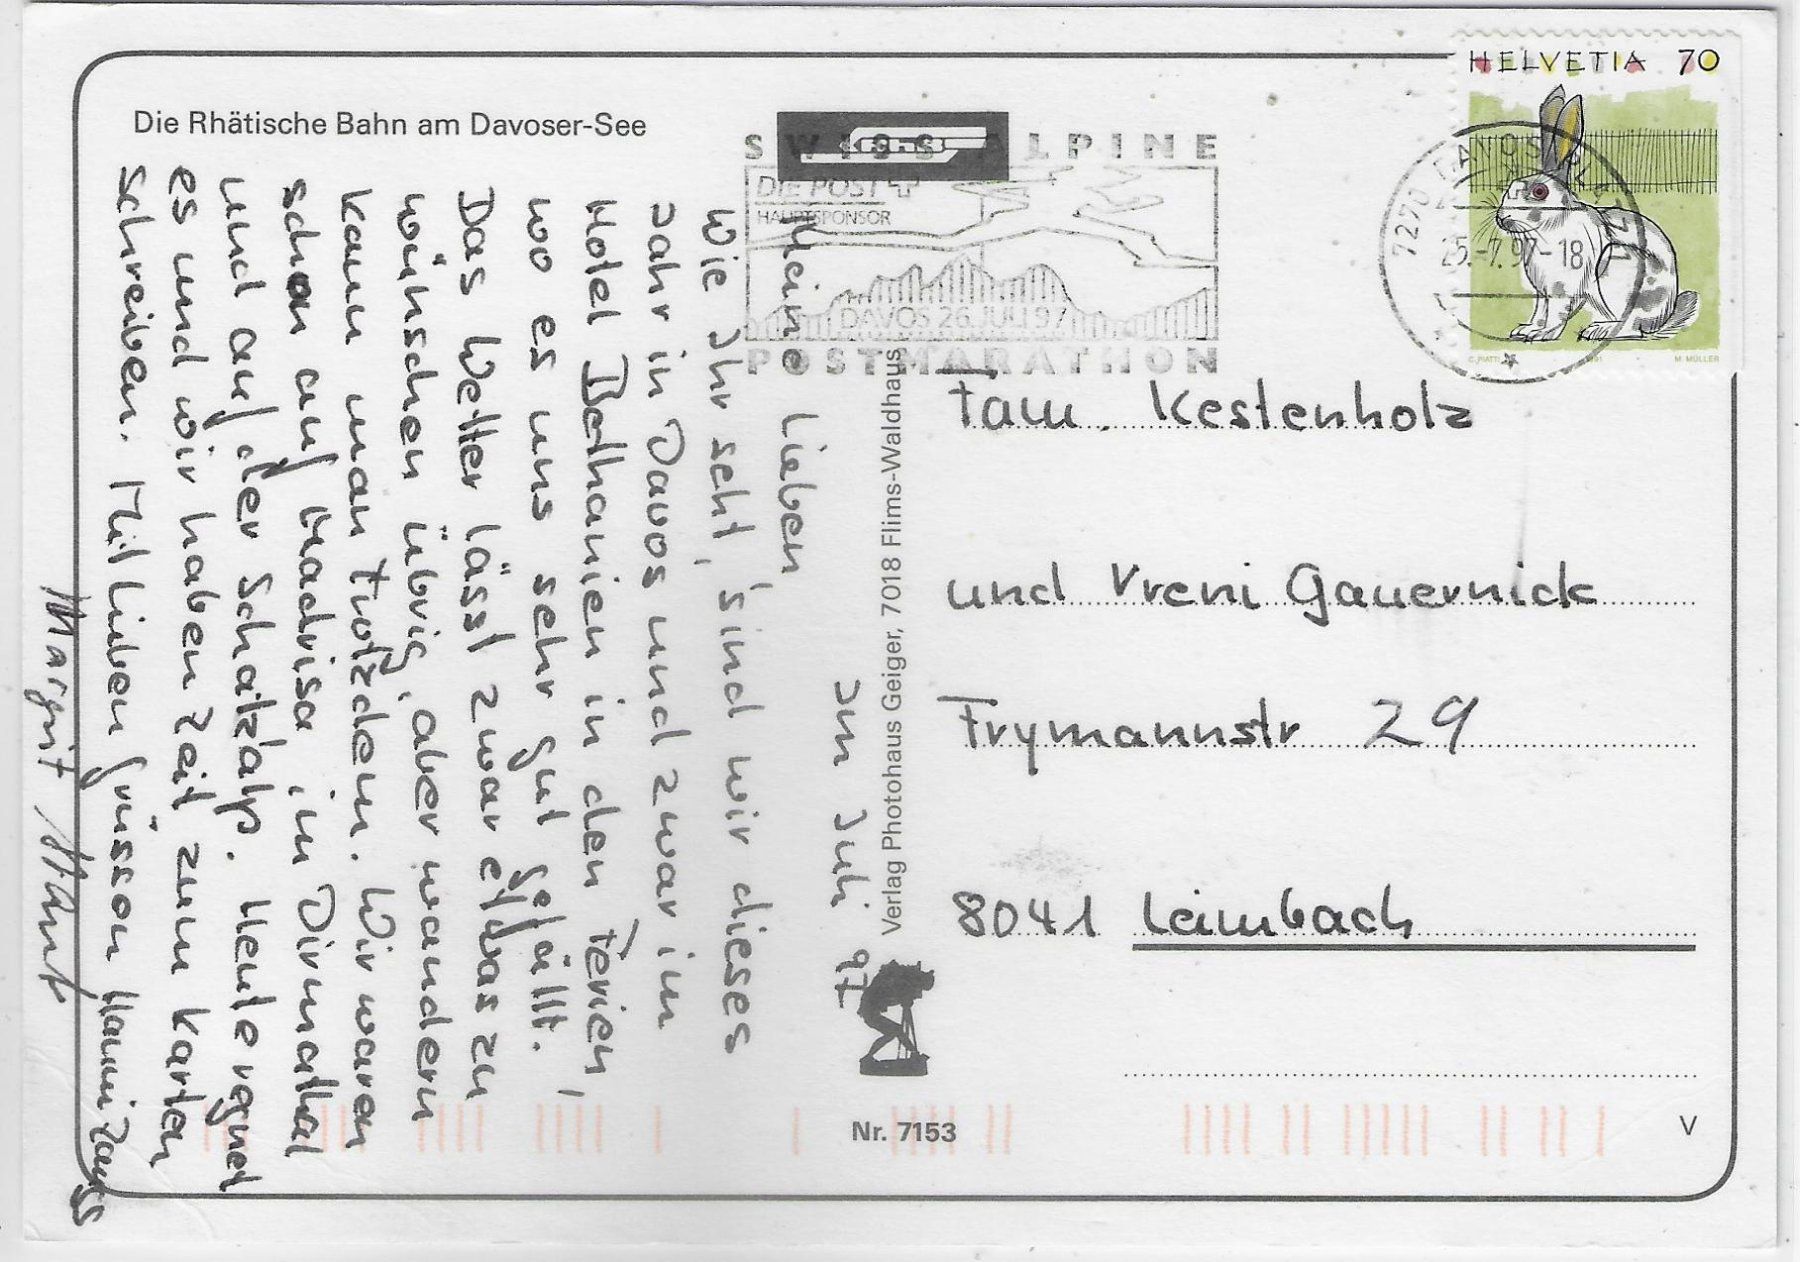 Die Rhätische Bahn am Davoser-See
HELVETIA 70
C. PIATTI 1991 M. MÜLLER
RhB
SWISS ALPINE
DIE POST
HAUPTSPONSOR
DAVOS 26. JULI 97
POSTMARATHON
7270 DAVOS PLATZ 1
25.-7.97-18
im Juli 97
Meine Lieben,
Wie Ihr seht, sind wir dieses
Jahr in Davos und zwar im
Hotel Bethanien in den Ferien,
wo es uns sehr gut gefällt.
Das Wetter lässt zwar etwas zu
wünschen übrig, aber wandern
kann man trotzdem. Wir waren
schon auf Madrisa, im Dismathal
und auf der Schatzalp. Heute regnet
es und wir haben Zeit zum Karten
schreiben. Mit lieben Grüssen Hanni
Margrit
Verlag Photohaus Geiger, 7018 Flims-Waldhaus
Fam. Kestenholz
und Vreni Gauernick
Frymannstr 29
8041 Leimbach
Nr. 7153
V